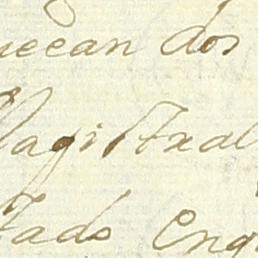 necan dos
Magistral
tado Eng